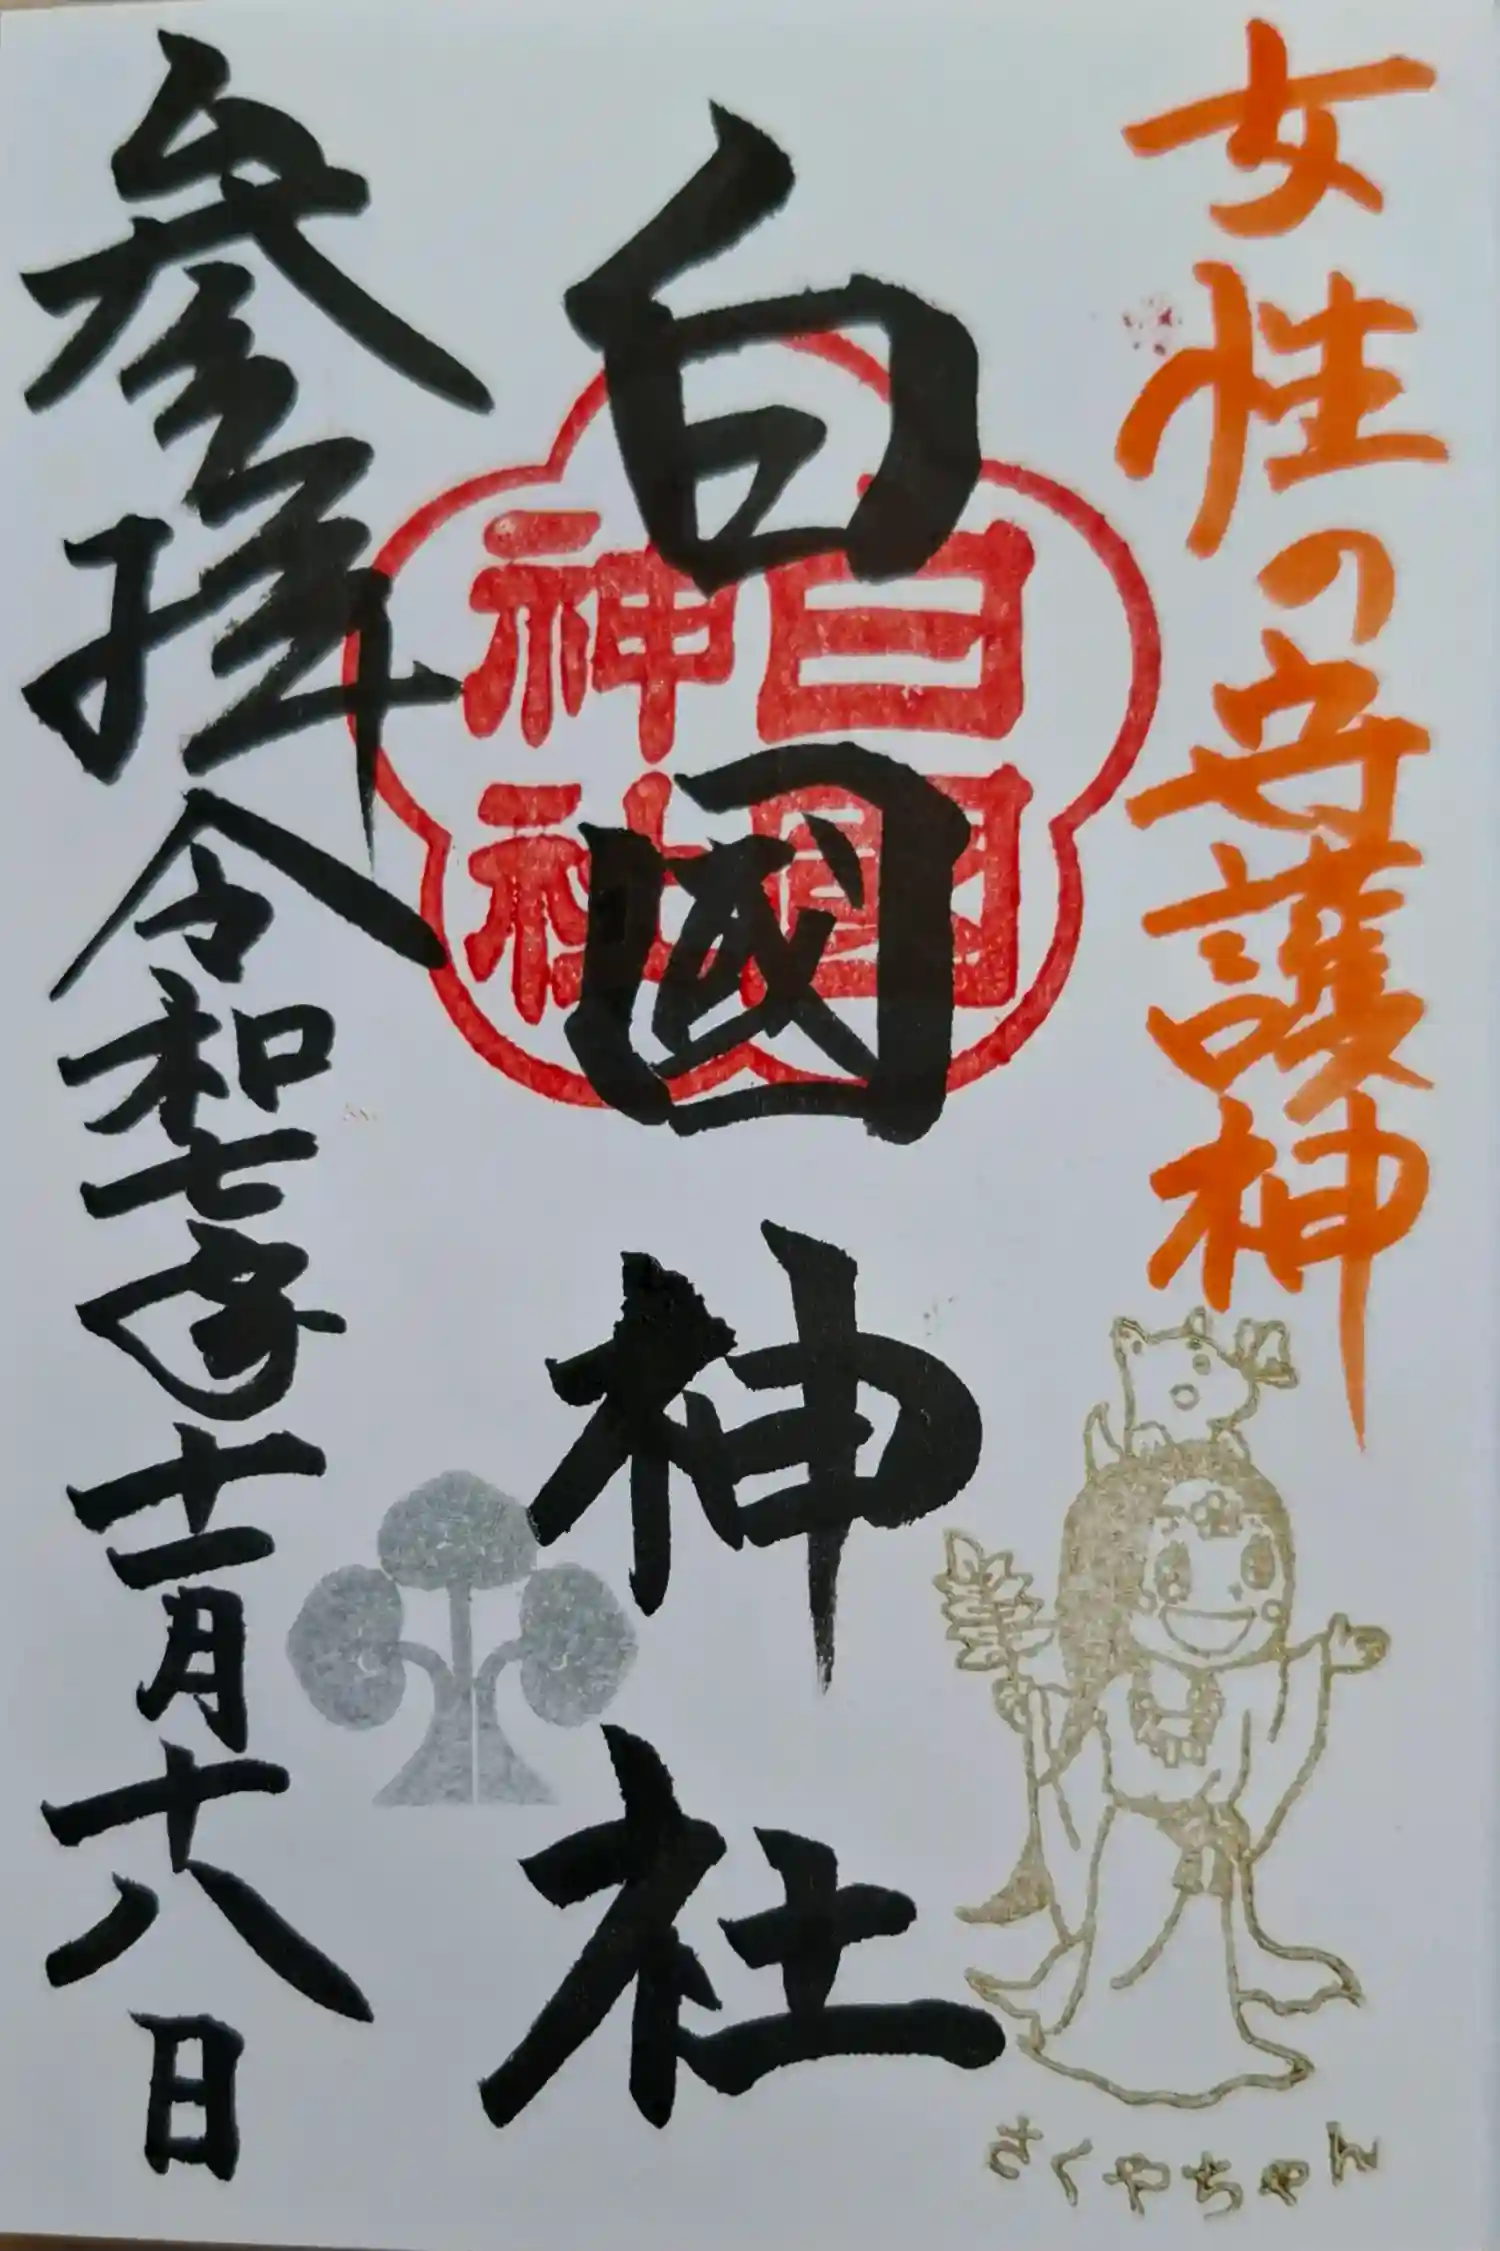 女性の守護神
白國神社
白國
神社
参拝令和七年十二月十八日
さくやちゃん